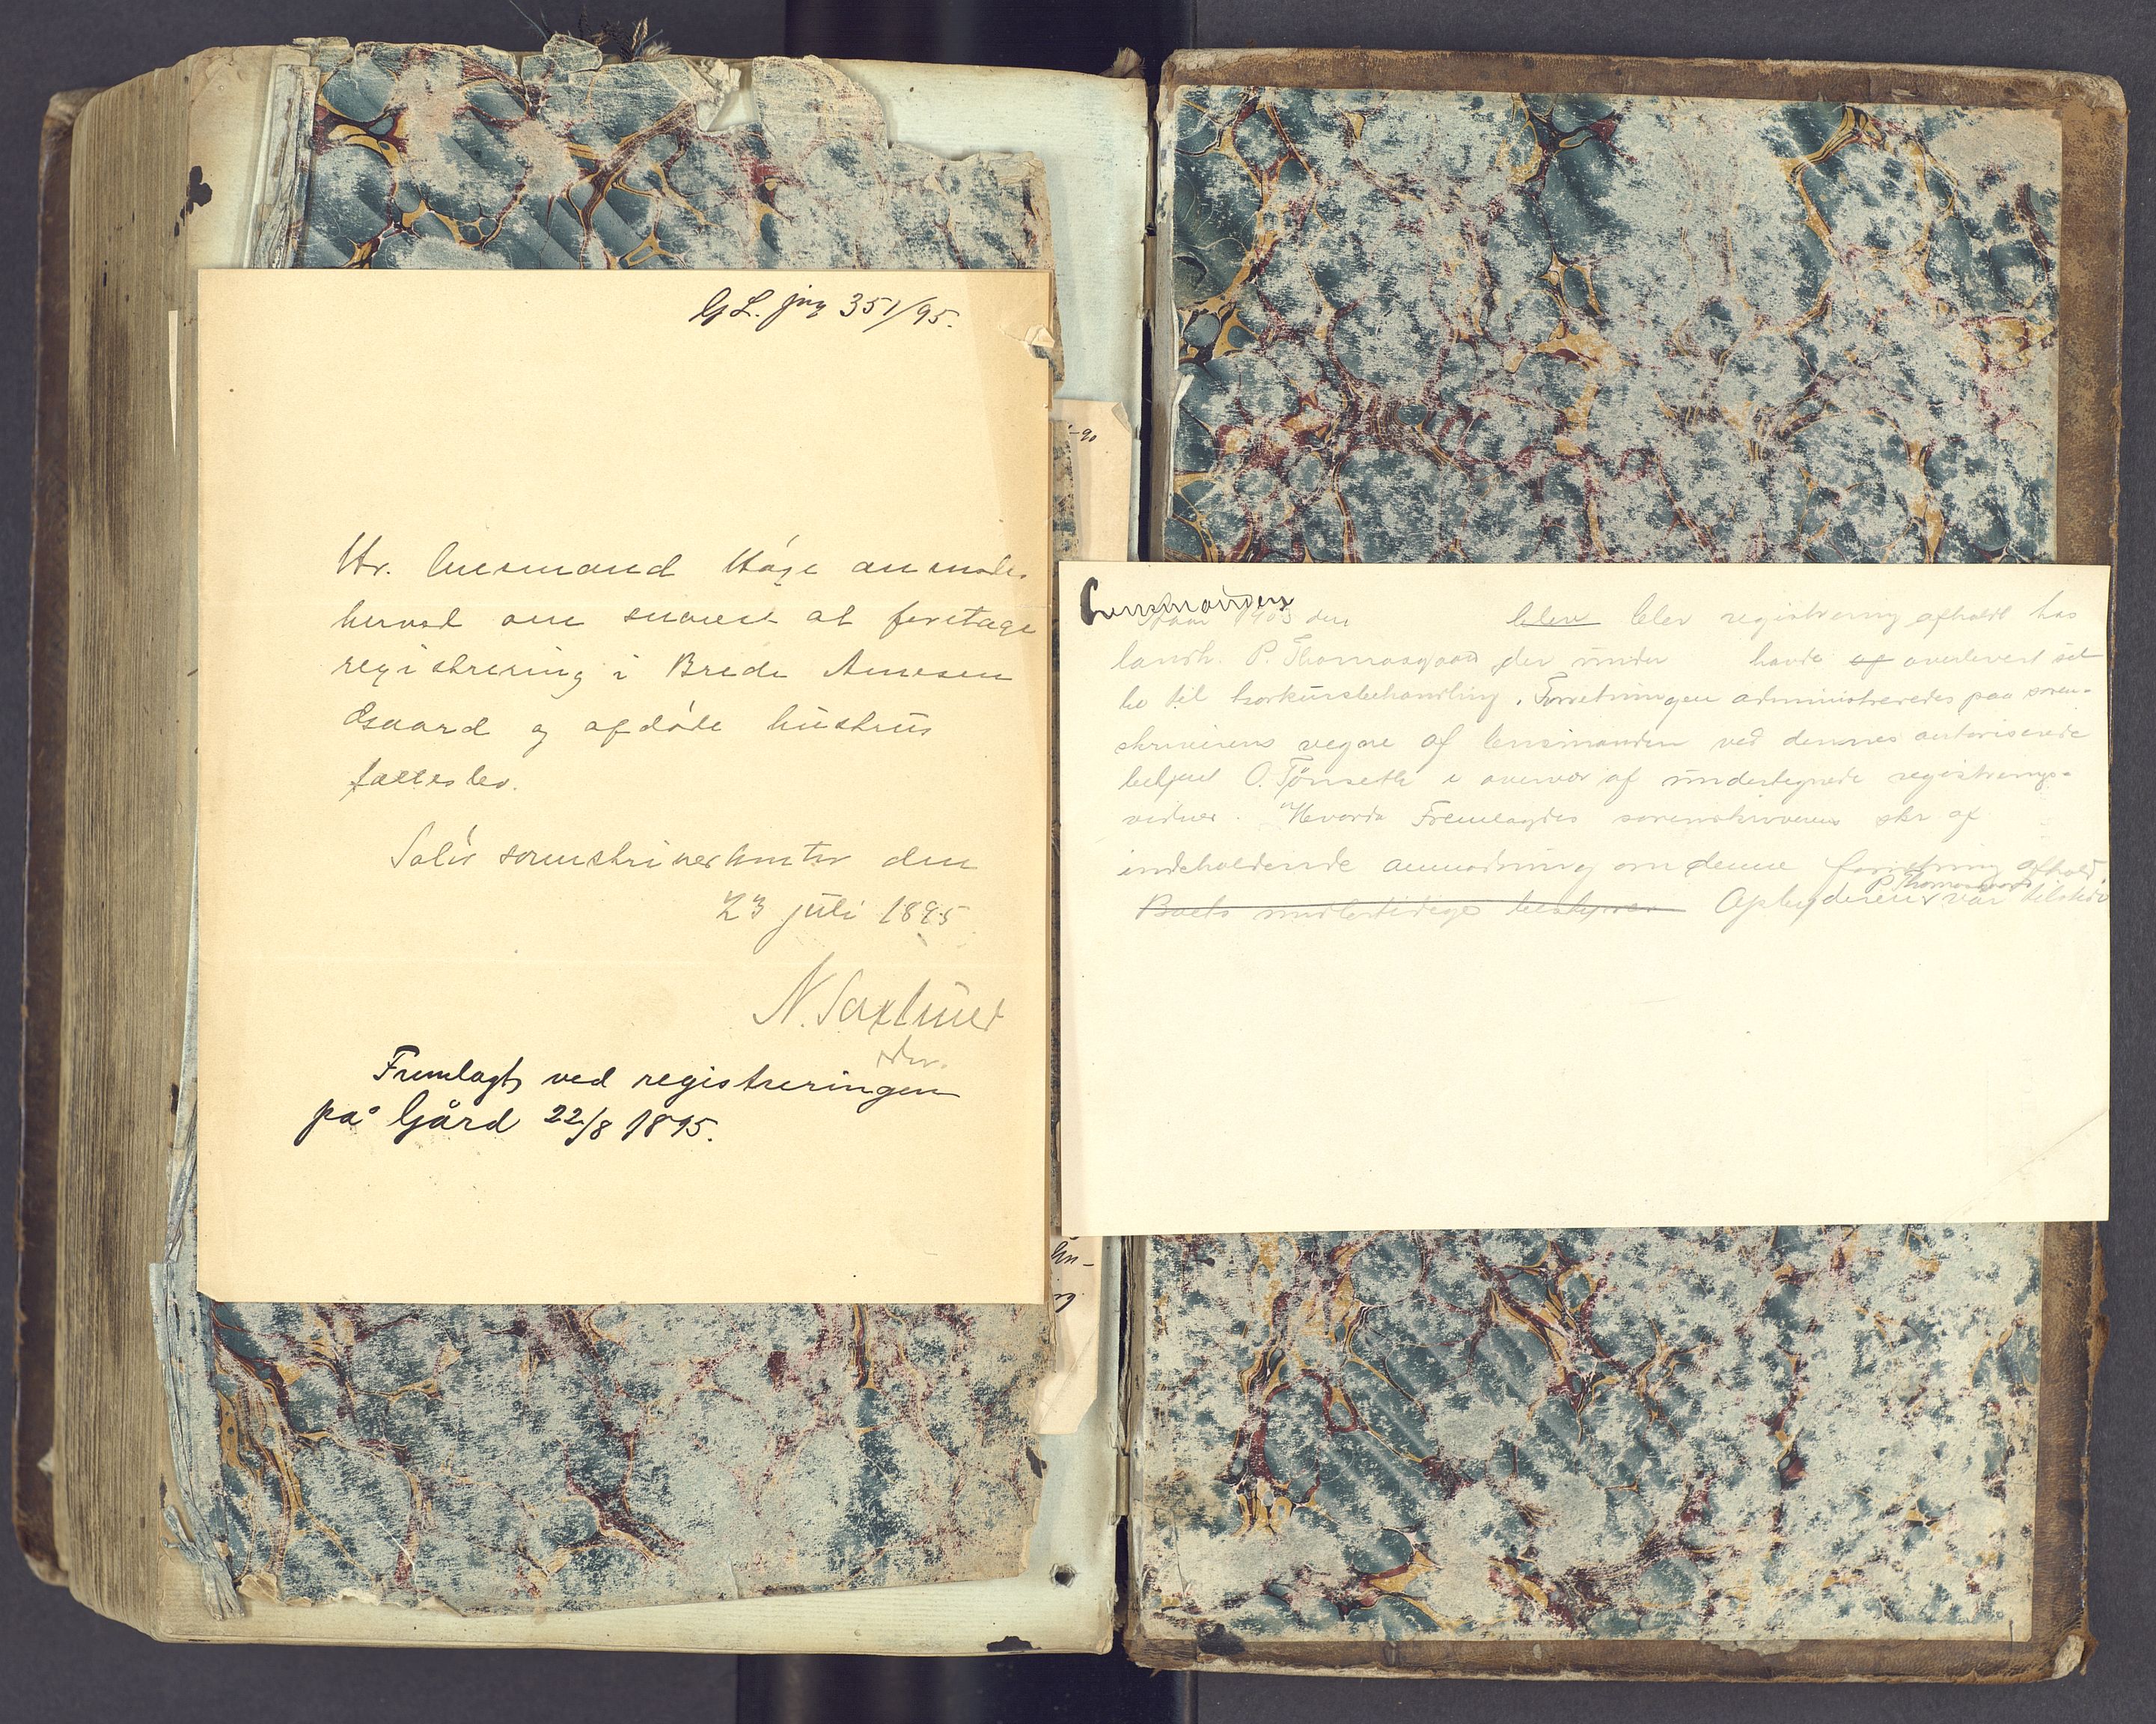 GL. jnr 351/95.
Hr. lensmand Høye anmodes
herved om snarest at foretage
registrering i Brede Arnesen
Gaard og afdøde hustrus
fællesbo.
Solør sorenskriverkontor den
23 juli 1895
N. Saxlund
Fremlagt ved registreringen
på Gård 22/8 1895.
-90
Lensmanden
Aar 1903 den blev blev registrering afholdt hos
landh. P. Thomasgaard der under havde af overlevert sit
bo til konkursbehandling. Forretningen administreredes paa soren-
skriverens vegne af lensmanden ved dennes autoriserede
betjent O. Tønseth i overvær af undertegnede registrerings-
vidner. Hvorda Fremlagdes sorenskriverens skr af
indeholdende anmodning om denne forretning afhold.
Boets midlertidige bestyrer Opbyderen P. Thomasgaard var tilstede